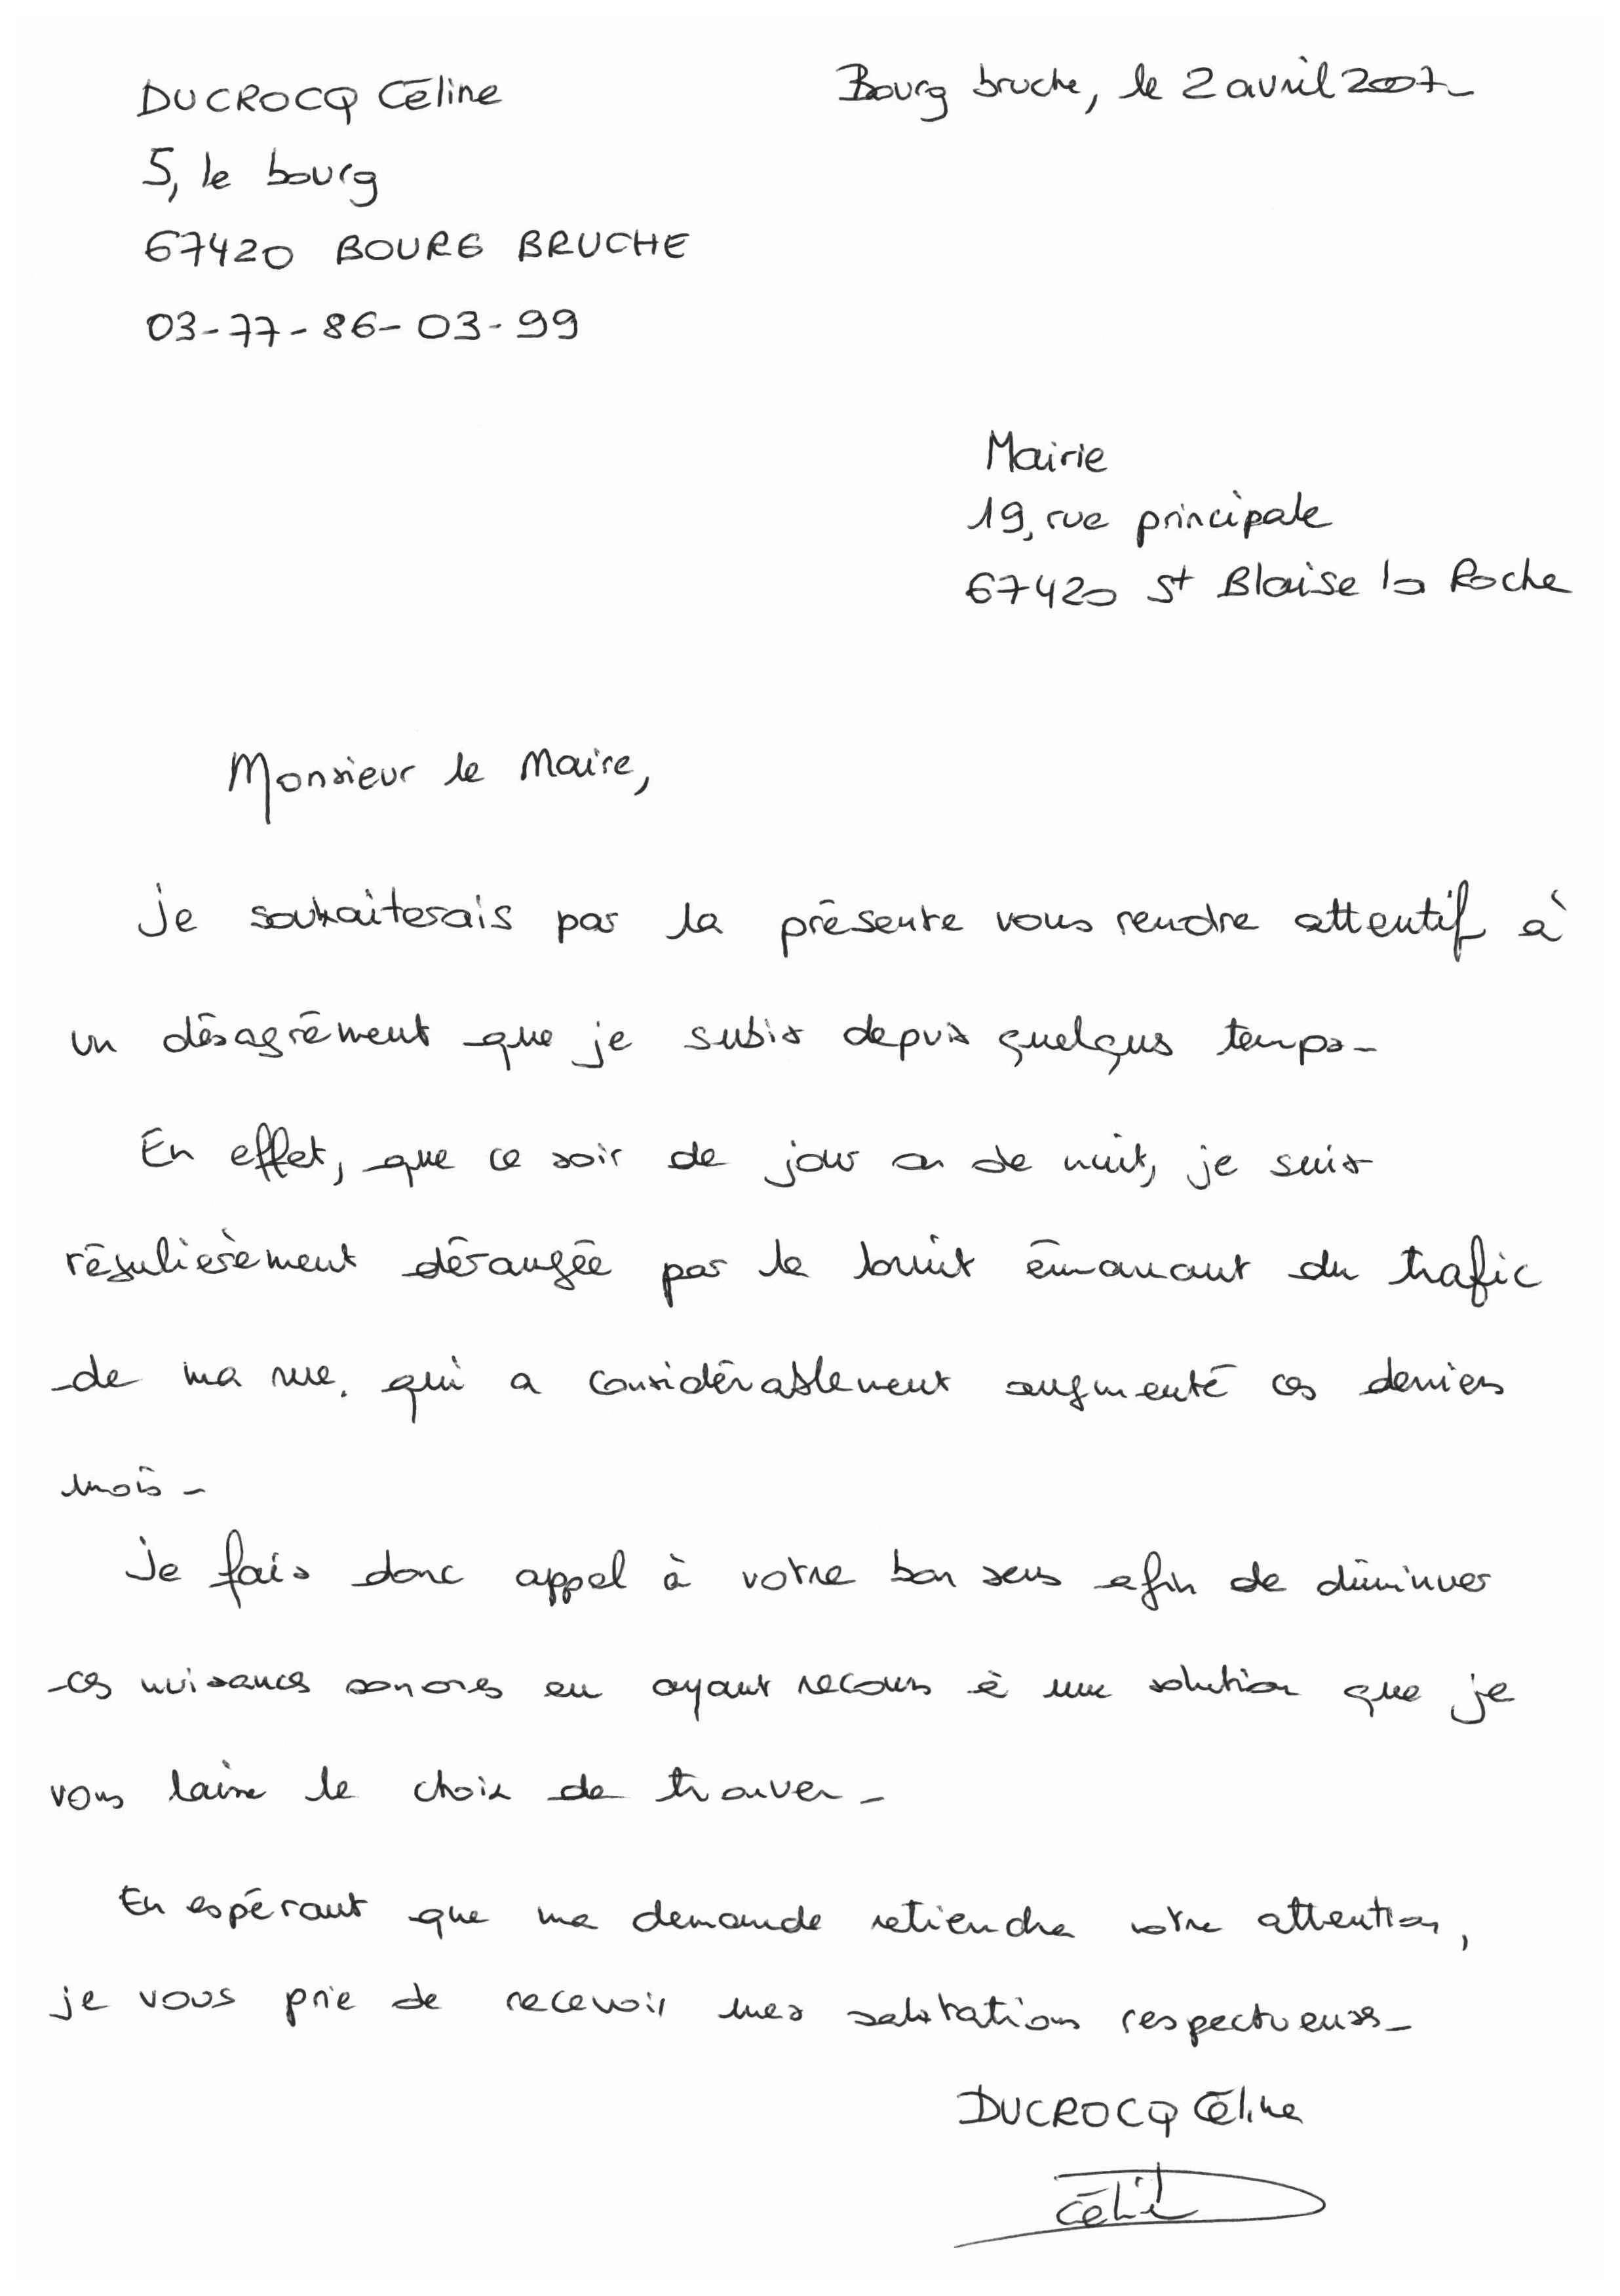 DUCROCQ Céline
Bourg bruche, le 2 avril 2007-
5, le bourg
67420 BOURG BRUCHE
03-77-86-03-99
Mairie
19, rue principale
67420 St Blaise la Roche
Monsieur le Maire,
Je souhaiterais par la présente vous rendre attentif à
un désagrément que je subis depuis quelqus temps-
En effet, que ce soir de jour ou de nuit, je suis
régulierèment dérangée par le bruit émanant du trafic
de ma rue, qui a considérablement augmenté ces derniers
mois-
Je fais donc appel à votre bon sens afin de diminuer
ces nuisances sonores en ayant recours à une solution que je
vous laisse le choix de trouver-
En espérant que ma demande retiendra votre attention,
je vous prie de recevoir mes salutations respectueuses-
DUCROCQ Céline
Céli